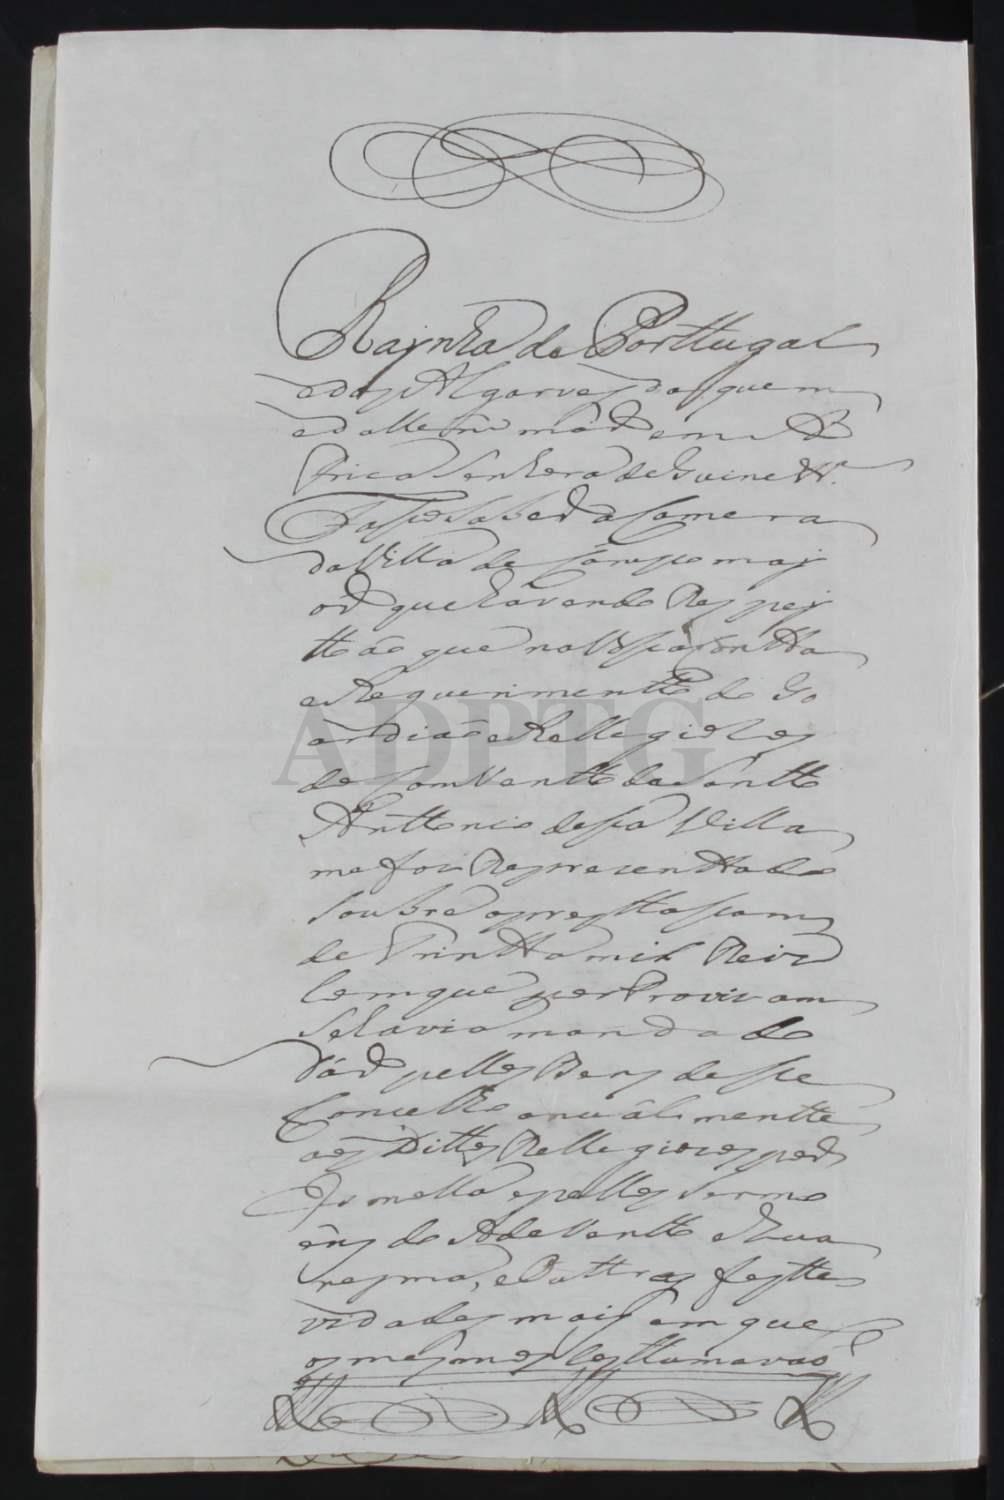 Raynha de Porttugal
e dos Algarves daquem
e dallem mâr em A
frica Senhora de Guine &.ª
Faço saber a Camera
da Villa de Campo may
or que havendo Respey
tto âo que na Vossa Contta
e Requerimentto do Go
ardiaõ e Relligiozos
do Conventto de Santto
Anttonio dessa Villa
me foi Reprezenttado
soubre a presttassam
de Trintta mil Reis
em que por Provizam
se lavia mandado
dár pellos Bens desse
Concelho anuâlmentte
aos Dittos Relligiozos por
Esmolla e pellos Serm
ôns do Advento e Qua
resma, e outtras festte
vidades mais em que
os mesmos costtumavaõ
ADPTG